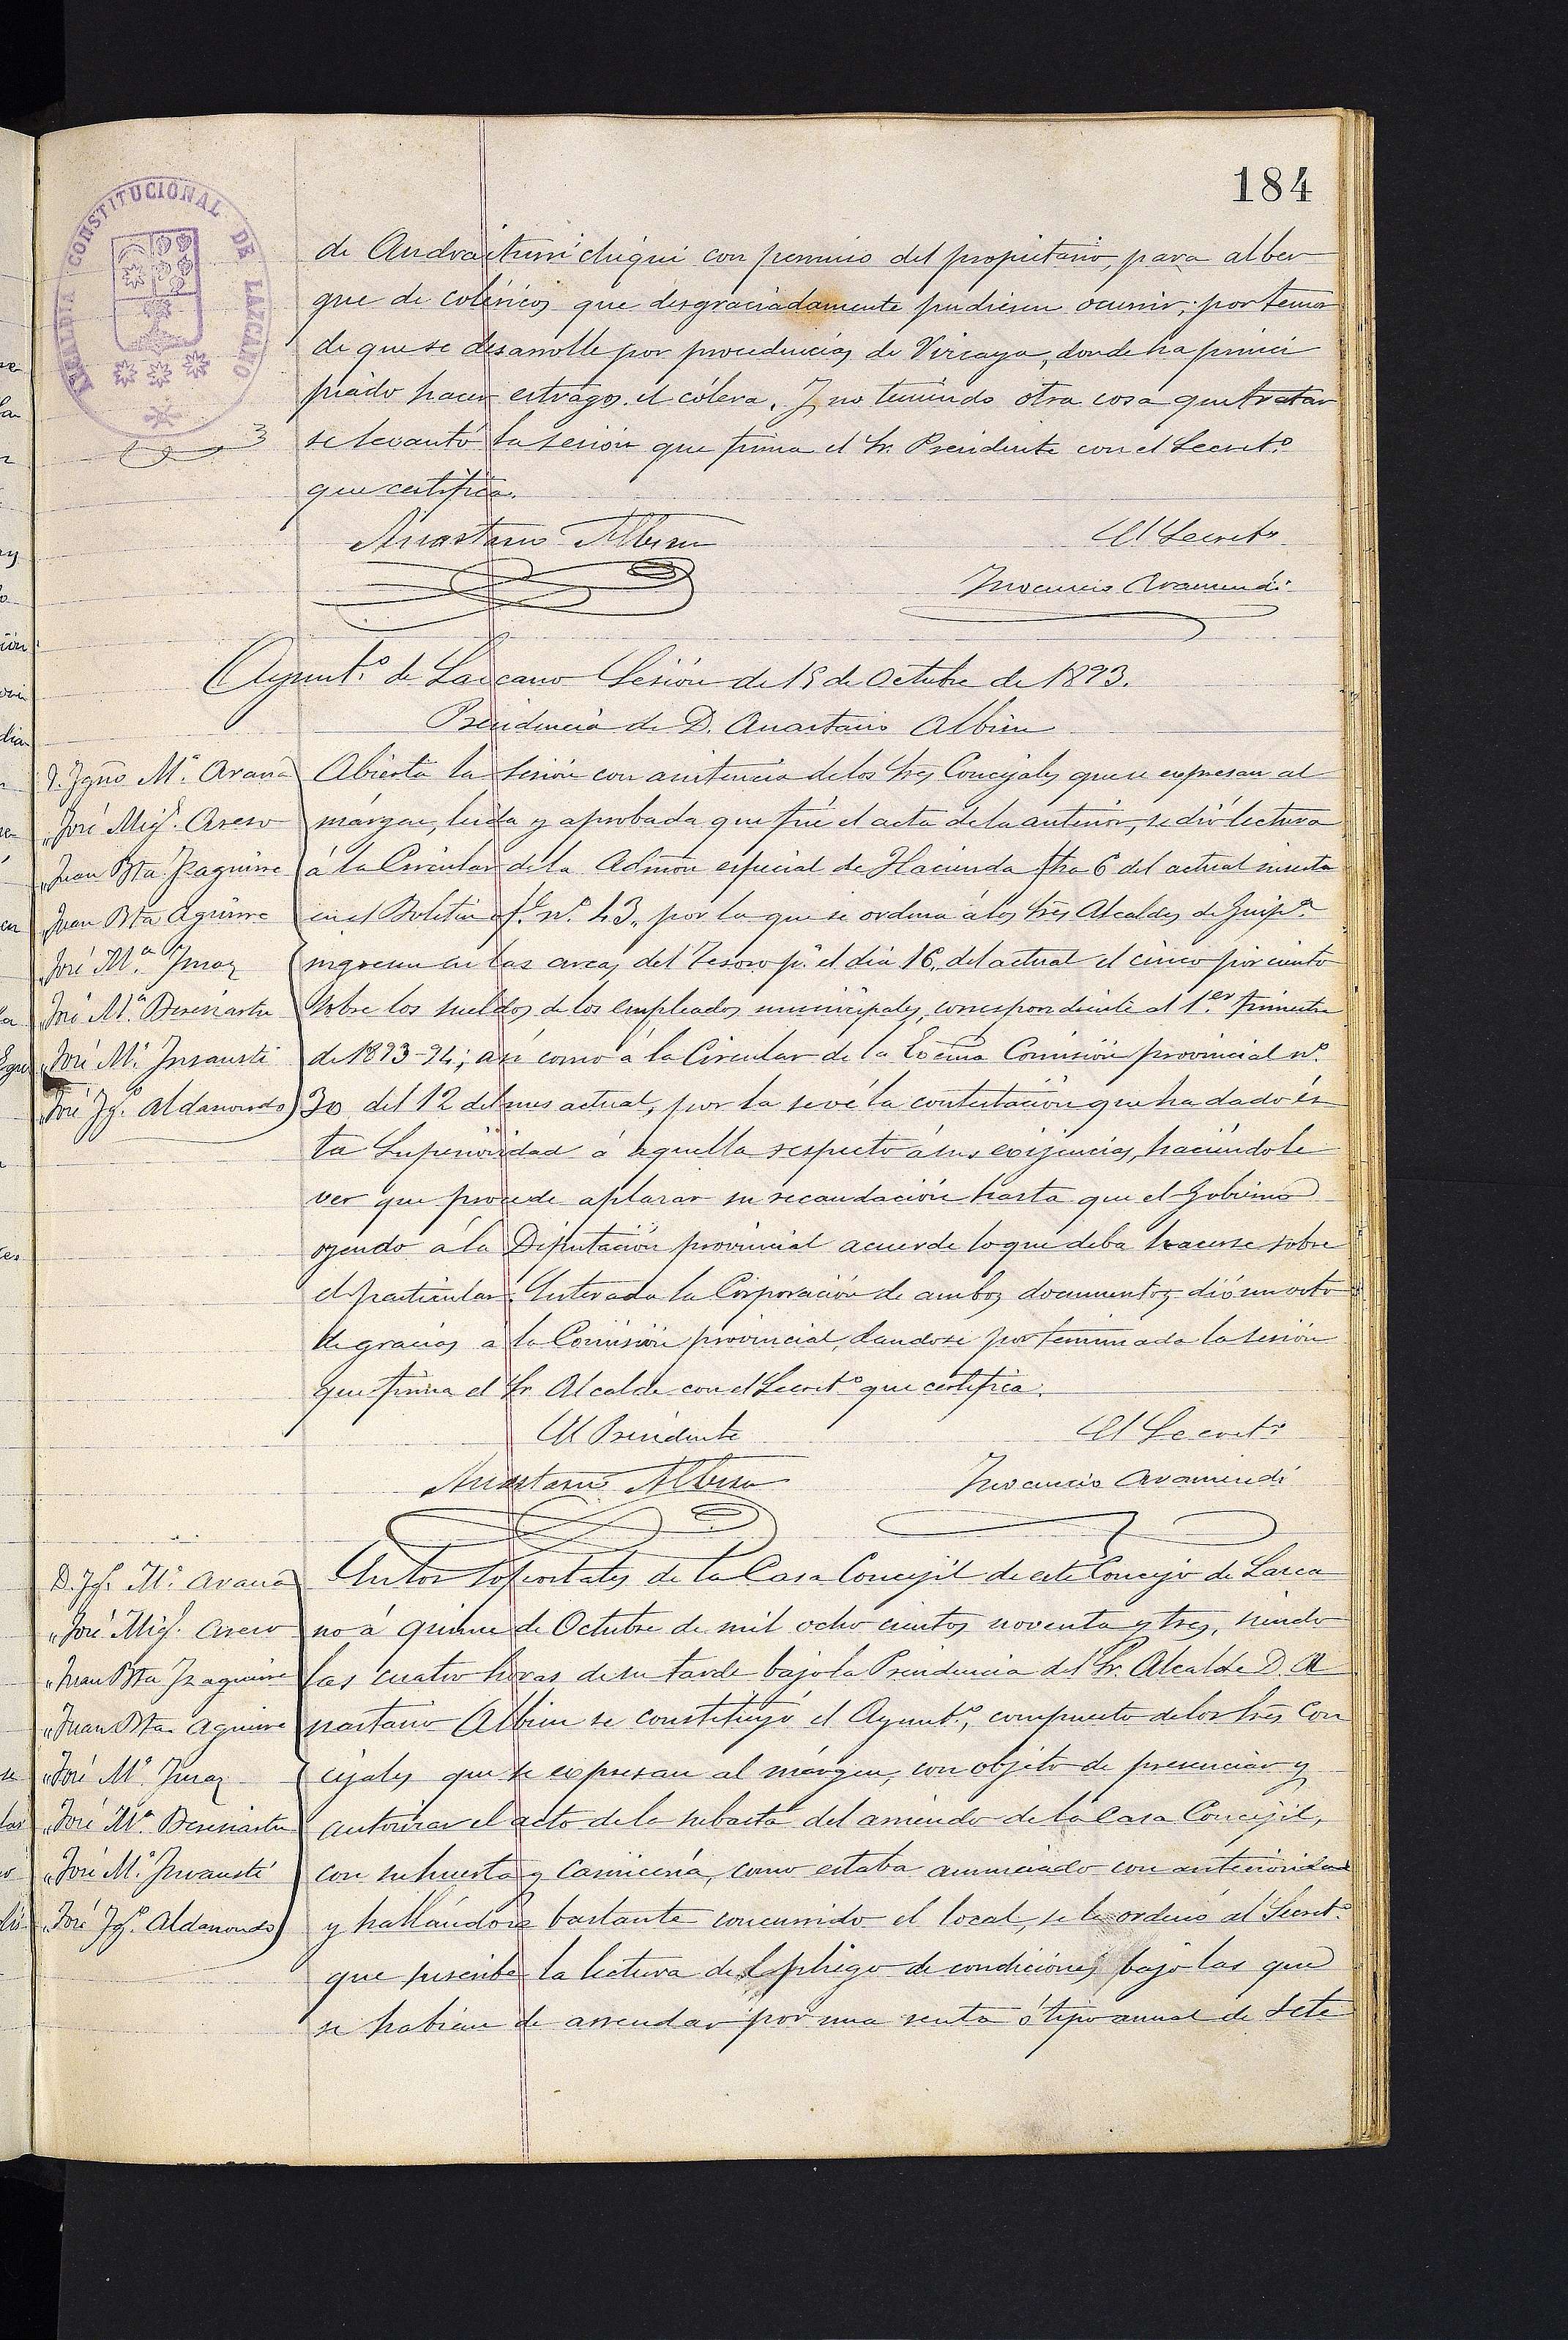 184
ALCALDIA CONSTITUCIONAL DE LAZCANO
de Andraiturri chiqui con permiso del propietario, para alber
gue de coléricos que desgraciadamente pudiesen ocurrir, por temor
de que se desarrolle por procedencias de Vizcaya, donde ha princi
piado hacer estragos el cólera. Y no teniendo otra cosa que tratar
se levantó la sesión que firma el Sr. Presidente con el Secret.º
que certifica.
Anastasio Albisu
El Secret.º
Inocencio Aramendi
Ayunt.º de Lazcano Sesión de 15 de Octubre de 1893.
Presidencia de D. Anastasio Albisu
D. Ygno M.ª Arana
„ José Mig.l Areso
„ Juan Bta Yzaguirre
„ Juan Bta Aguirre
„ José M.ª Ymaz
„ José M.ª Beresiartu
„ José M.ª Insausti
„ José Ig.º Aldanondo
Abierta la sesión con asistencia de los Sres Concejales que se expresan al
márgen, leida y aprobada que fué el acta de la anterior, se dió lectura
á la Circular de la Admon especial de Hacienda fha 6 del actual inserta
en el Boletin of.l n.º 43, por la que se ordena á los Sres Alcaldes de Guip.ª
ingresen en las arcas del Tesoro p.ª el dia 16 del actual el cinco por ciento
sobre los sueldos de los empleados municipales, correspondiente al 1.er trimestre
de 1893-94; así como á la Circular de la Excma Comisión provincial n.º
30 del 12 del mes actual, por la se vé la contestación que ha dado és
ta Superioridad á aquella respecto á sus exijencias, haciéndole
ver que procede aplazar su recaudación hasta que el Gobierno
oyendo á la Diputación provincial acuerde lo que deba hacerse sobre
el particular. Enterada la Corporación de ambos documentos dió un voto
de gracias a la Comisión provincial, dandose por terminada la sesión
que firma el Sr. Alcalde con el Secret.º que certifica.
El Presidente
El Secret.º
Anastasio Albisu
Inocencio Aramendi
D. Ig.º M.ª Arana
„ José Mig.l Areso
„ Juan Bta Yzaguirre
„ Juan Bta Aguirre
„ José M.ª Ymaz
„ José M.ª Beresiartu
„ José M.ª Insausti
„ José Ig.º Aldanondo
En los soportales de la Casa Concejil de este Concejo de Lazca
no á quince de Octubre de mil ocho cientos noventa y tres, siendo
las cuatro horas de su tarde bajo la Presidencia del Sr. Alcalde D. A
nastasio Albisu se constituyó el Ayunt.º, compuesto de los Sres Con
cejales que se expresan al márgen, con objeto de presenciar y
autorizar el acto de la subasta del arriendo de la Casa Concejil,
con su huerta y Carnicería, como estaba anunciado con anterioridad
y hallándose bastante concurrido el local, se le ordenó al Secret.º
que suscribe la lectura del pliego de condiciones bajo las que
se habian de arrendar por una renta ó tipo anual de sete